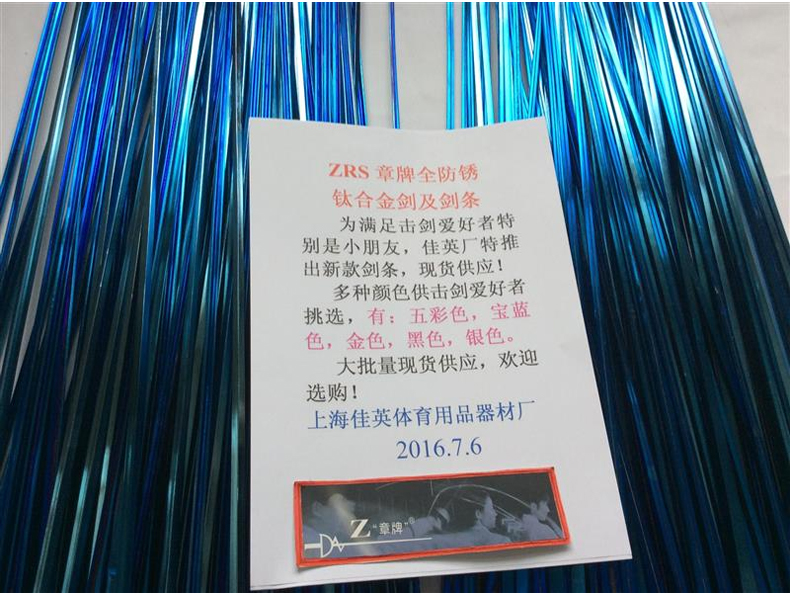 ZRS 章牌全防锈
钛合金剑及剑条
为满足击剑爱好者特
别是小朋友，佳英厂特推
出新款剑条，现货供应！
多种颜色供击剑爱好者
挑选，有：五彩色，宝蓝
色，金色，黑色，银色。
大批量现货供应，欢迎
选购！
上海佳英体育用品器材厂
2016.7.6
Z“章牌”®